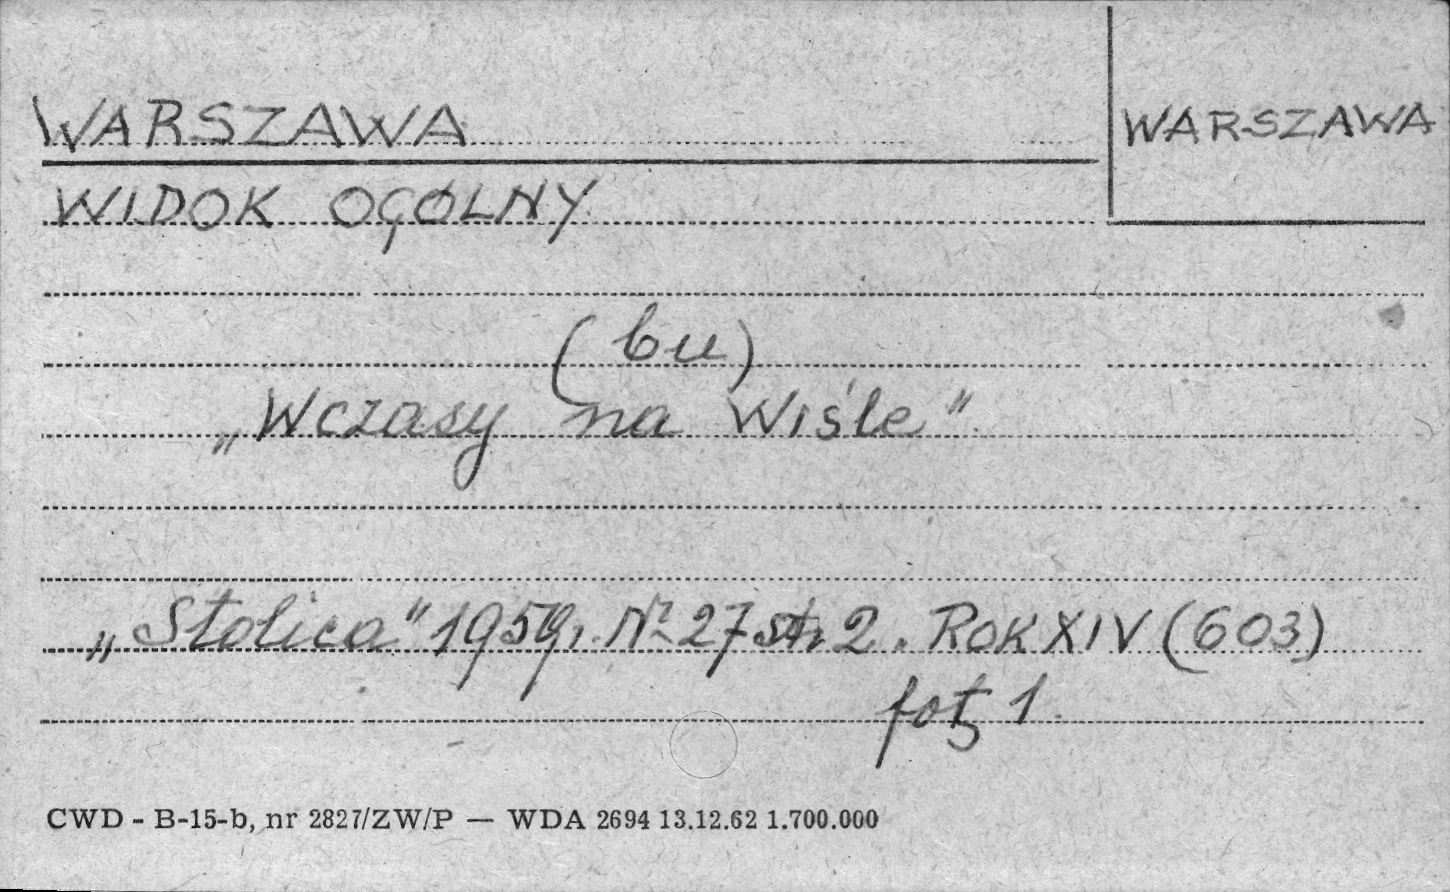 WARSZAWA
WARSZAWA
WIDOK OGÓLNY
(bu)
„Wczasy na Wiśle”
„Stolica” 1959r. Nr 27 str. 2. ROK XIV (603)
fot. 1.
CWD - B-15-b, nr 2827/ZW/P — WDA 2694 13.12.62 1.700.000